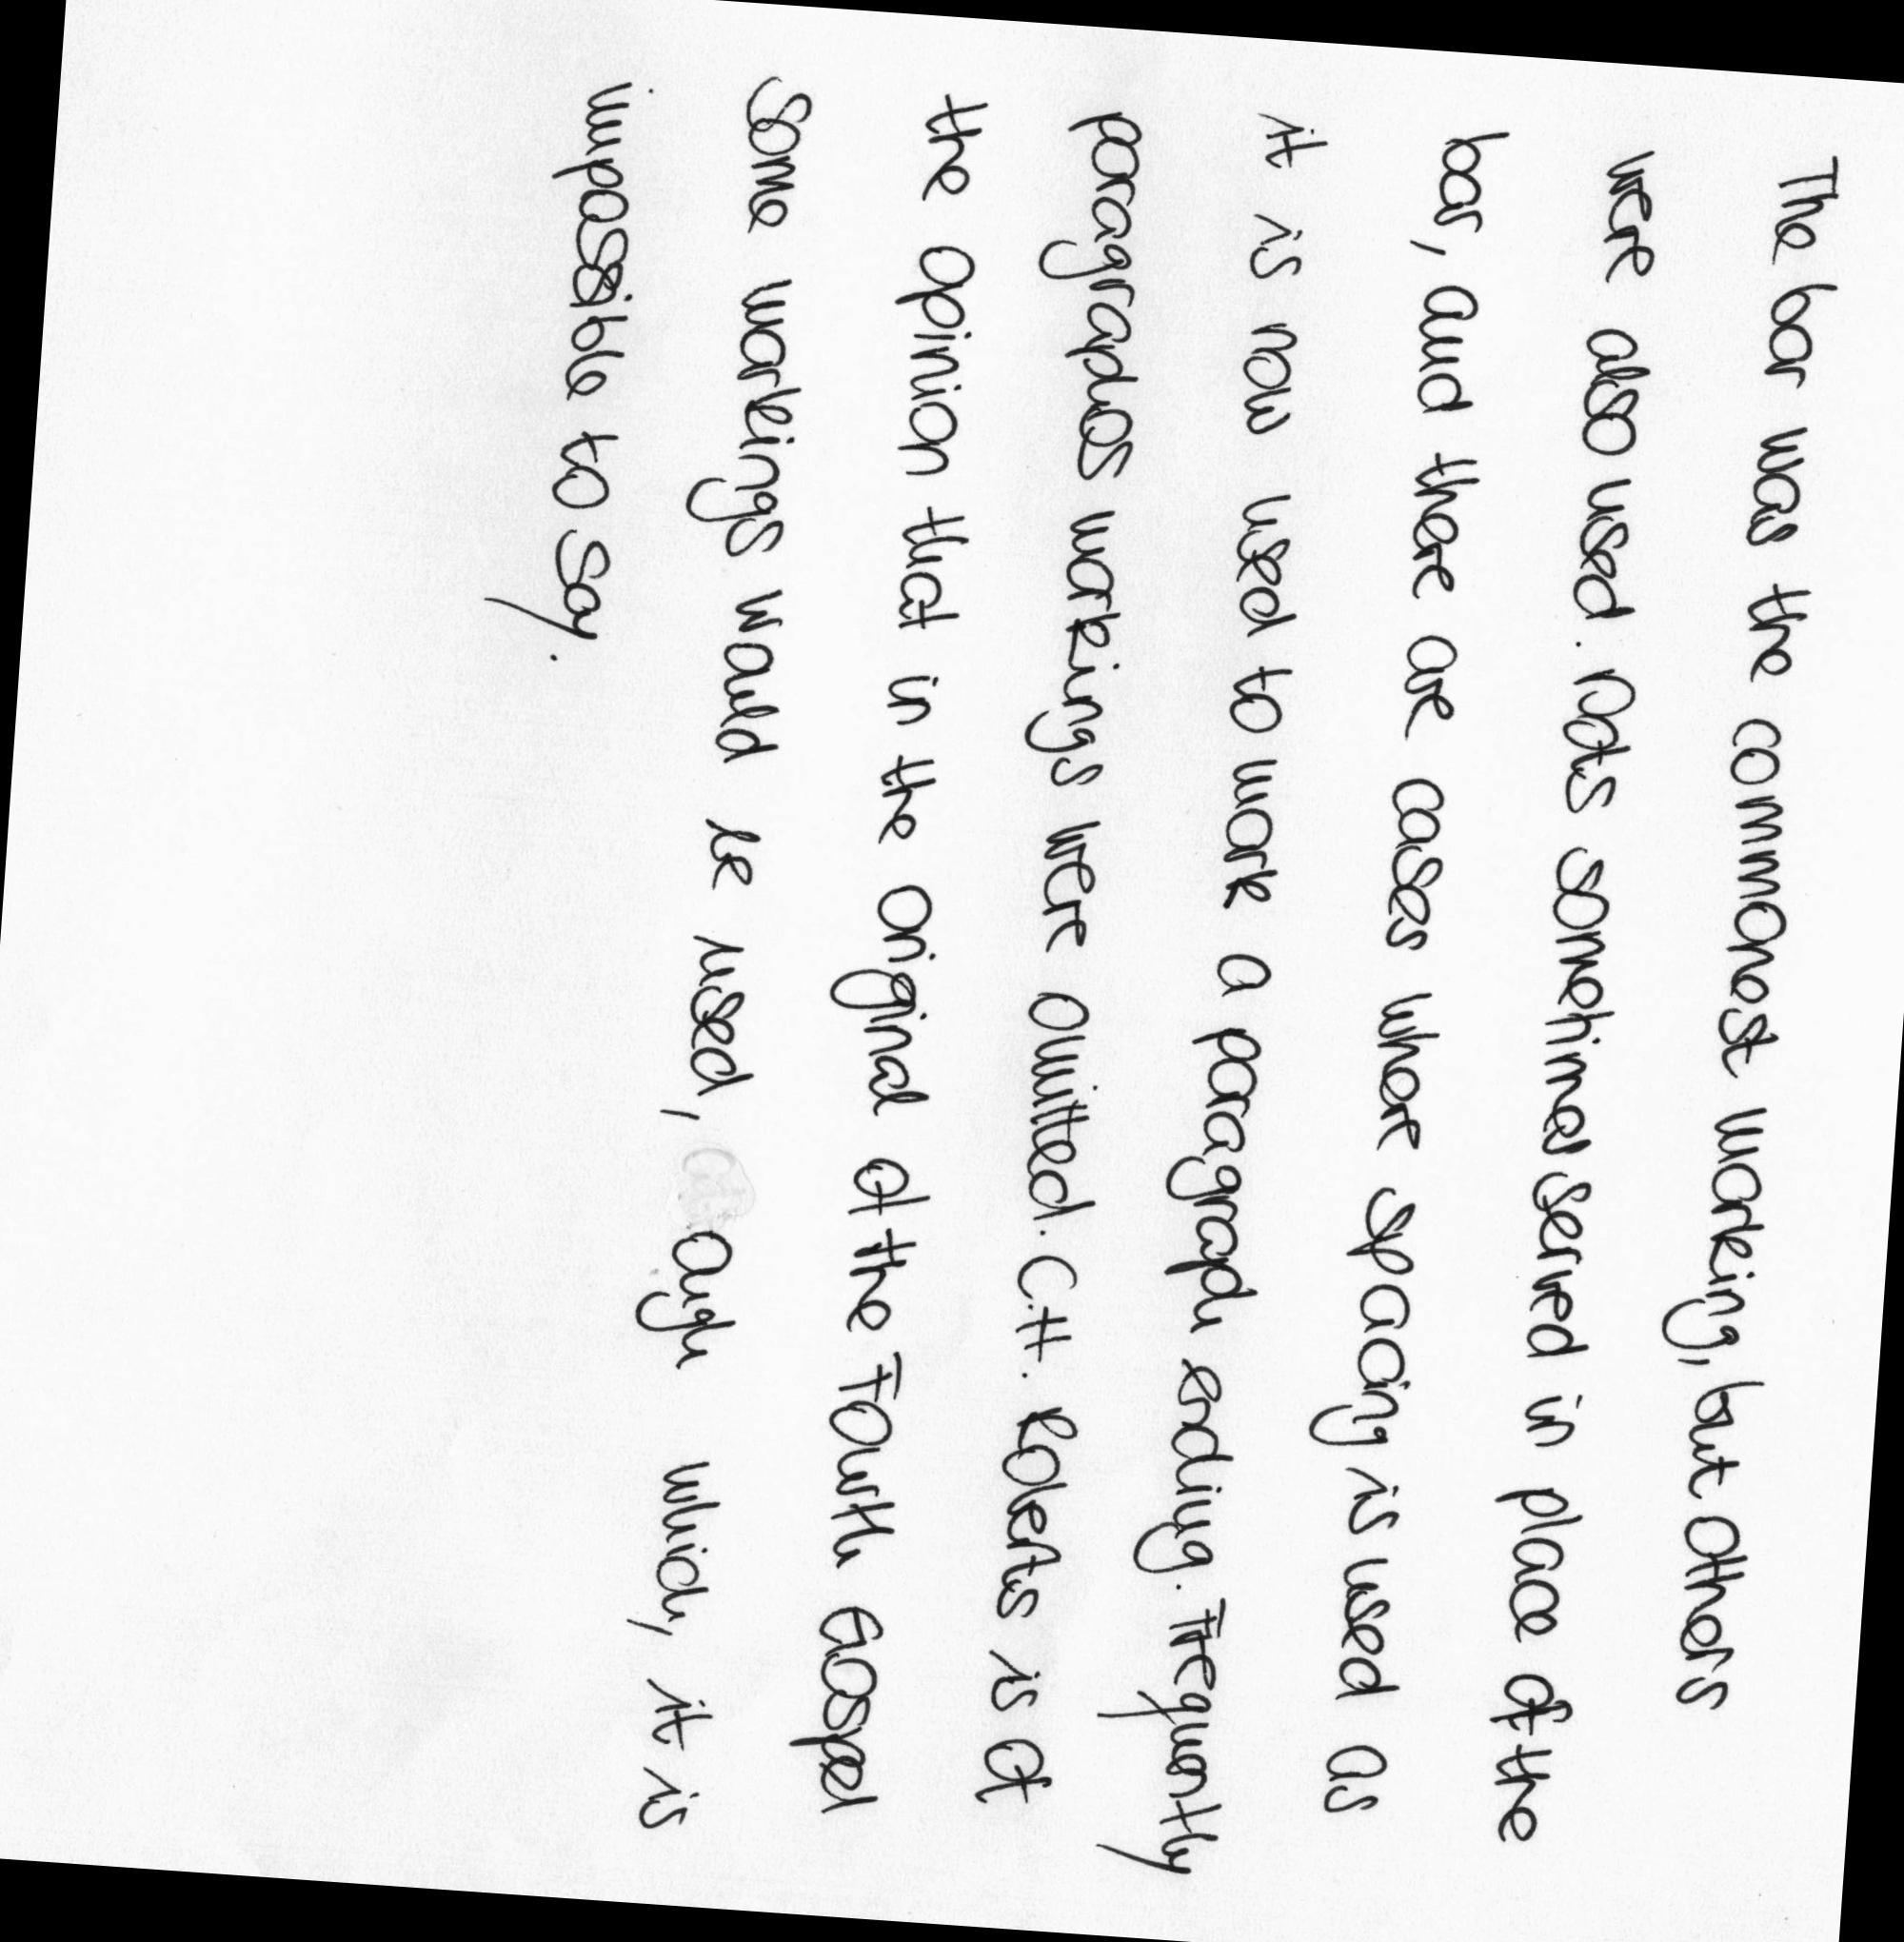 The bar was the commonest marking, but others
were also used. Dots sometimes served in place of the
bar, and there are cases where spacing is used as
it is now used to mark a paragraph ending. Frequently
paragraphos markings were omitted. C.H. Roberts is of
the opinion that in the original of the Fourth Gospel
some markings would be used, augh which, it is
impossible to say.